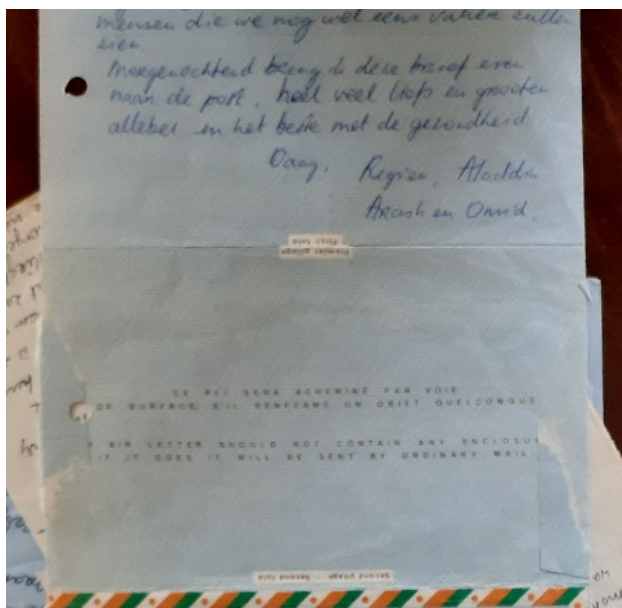 mensen die we nog wel eens vaker zullen
zien.
Morgenochtend breng ik deze brief even
naar de post, heel veel liefs en groeten
allebei en het beste met de gezondheid
Daag, Regien, Aladdin
Arash en Omid.
First fold
Premier pliage
CE PLI SERA ACHEMINE PAR VOIE
DE SURFACE, S'IL RENFERME UN OBJET QUELCONQUE
AIR LETTER SHOULD NOT CONTAIN ANY ENCLOSU
IF IT DOES IT WILL BE SENT BY ORDINARY MAIL.
Second pliage - Second fold